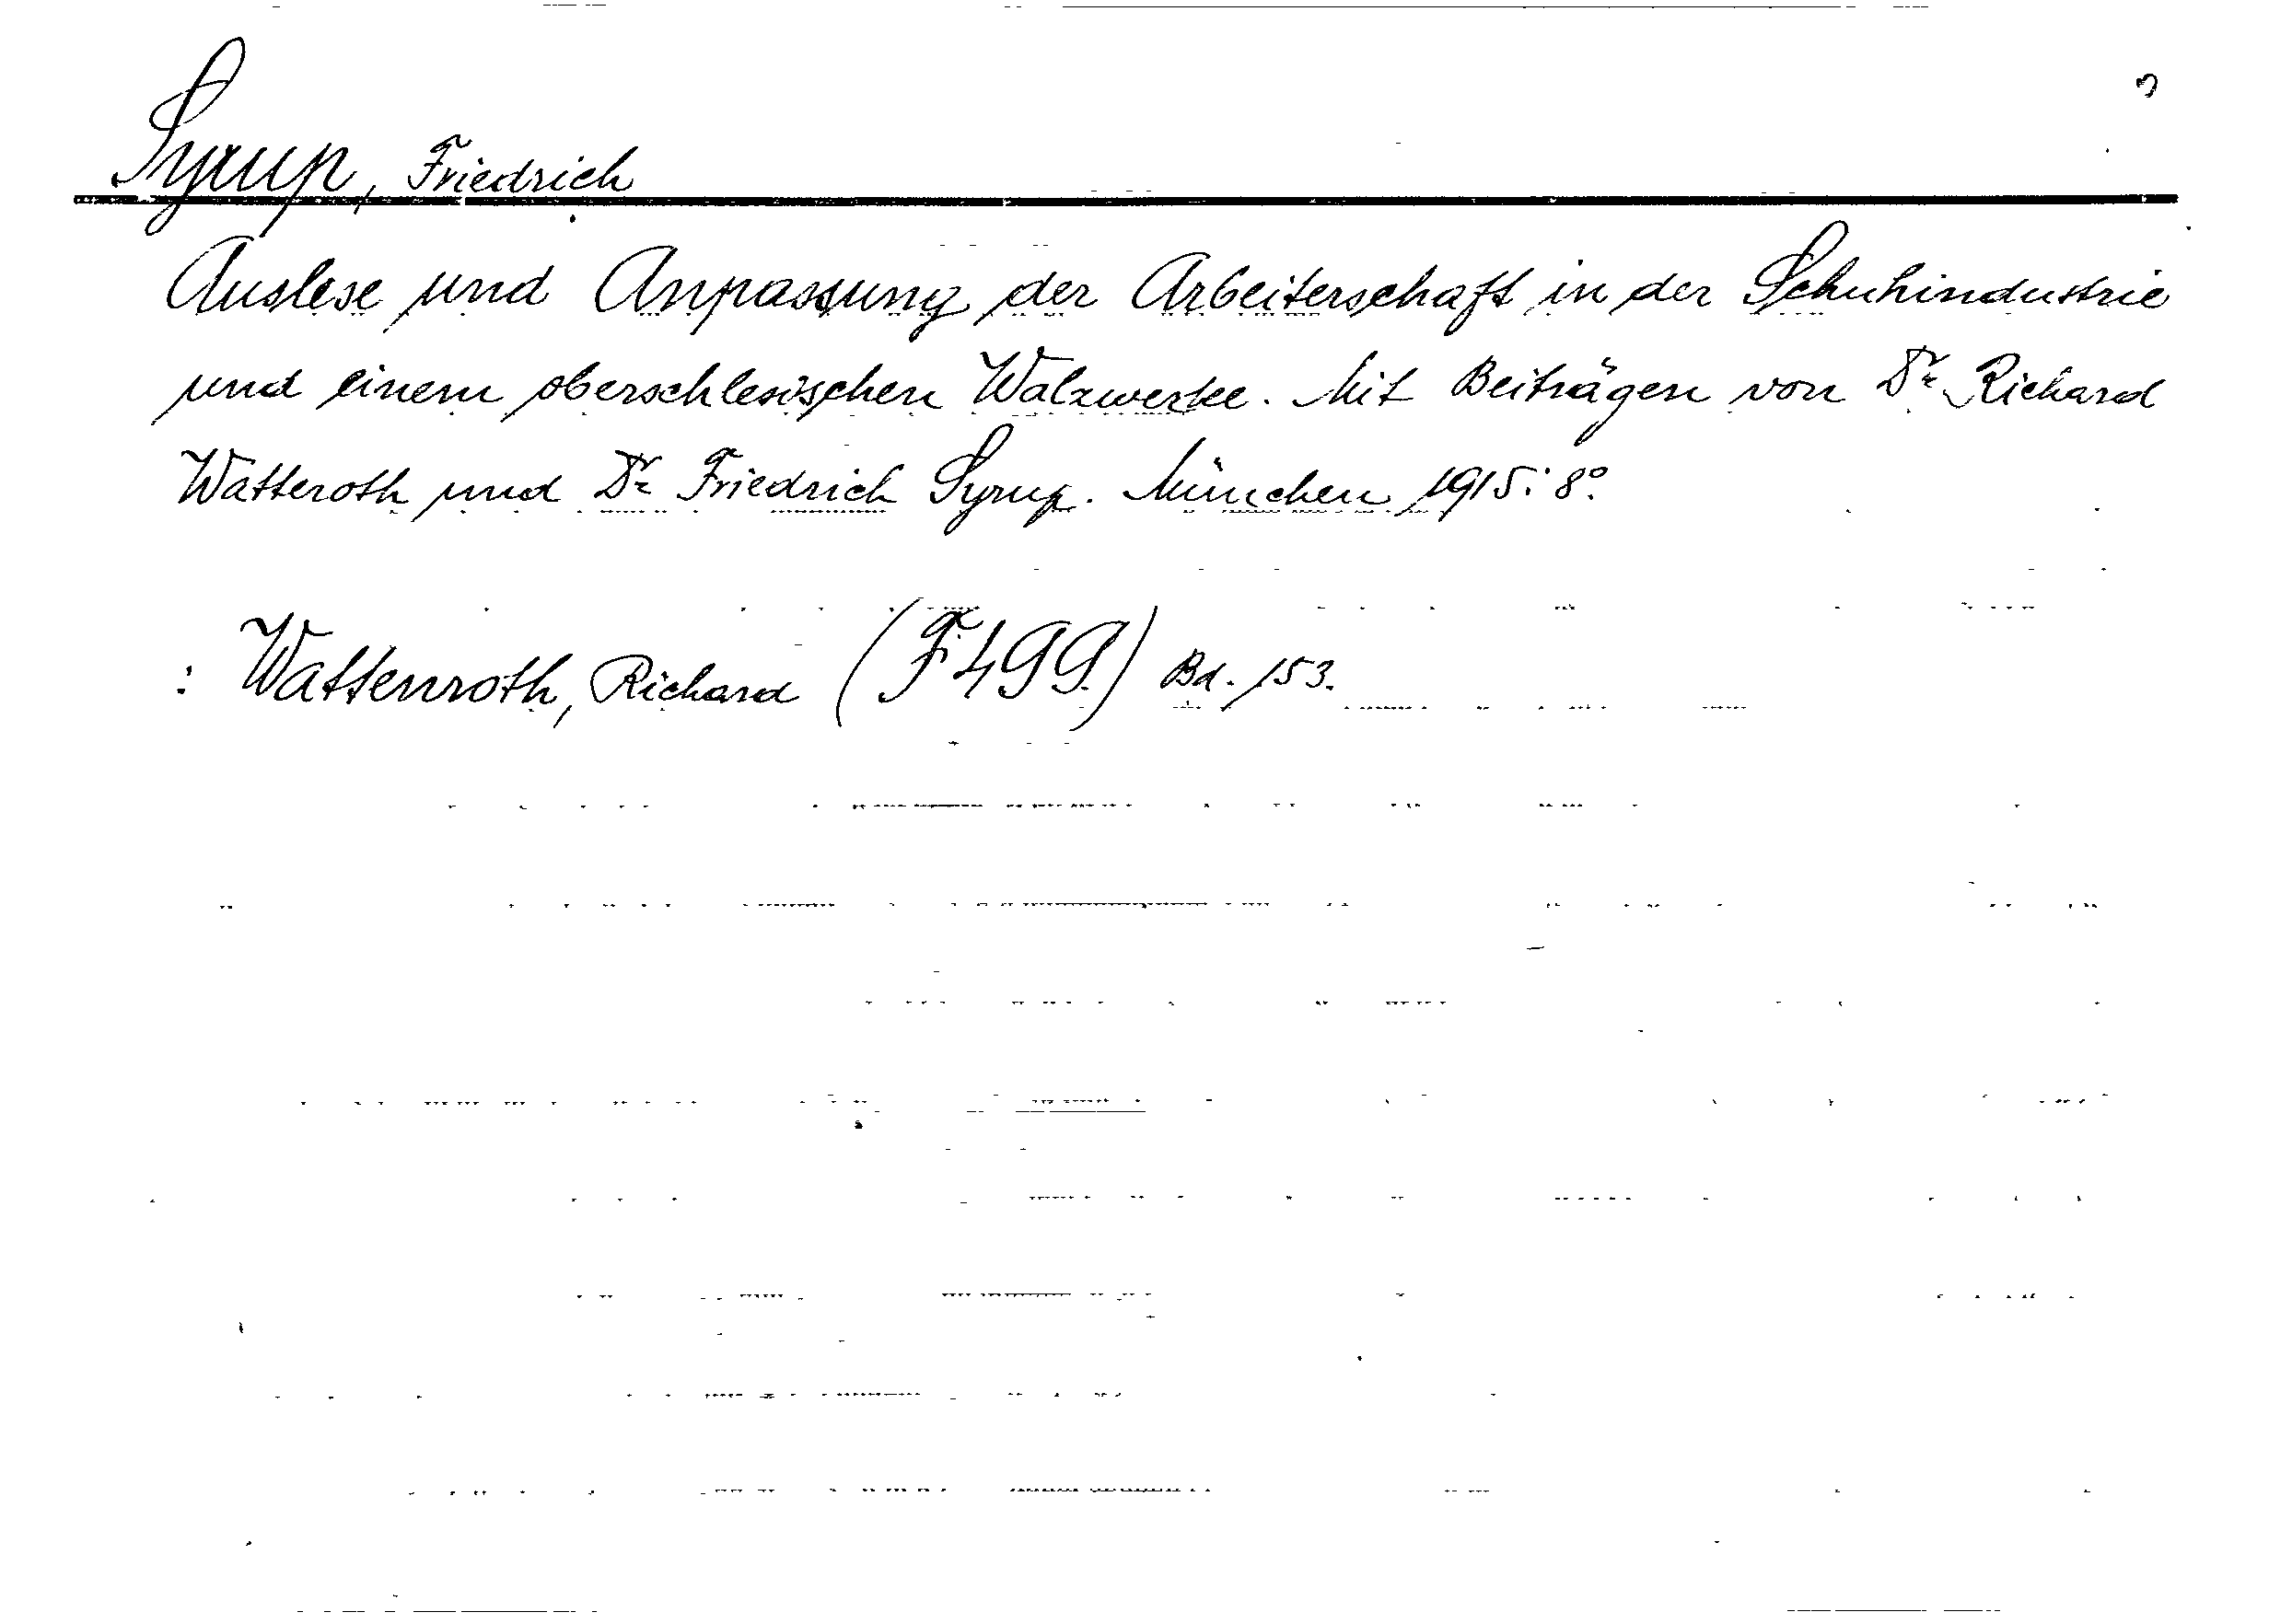 3
Syrup, Friedrich
Auslese und Anpassung der Arbeiterschaft in der Schuhindustrie
und einem oberschlesischen Walzwerke. Mit Beiträgen von Dr Richard
Watteroth und Dr Friedrich Syrup. München 1915. 8°.
: Wattenroth, Richard (F 499) Bd. 153.